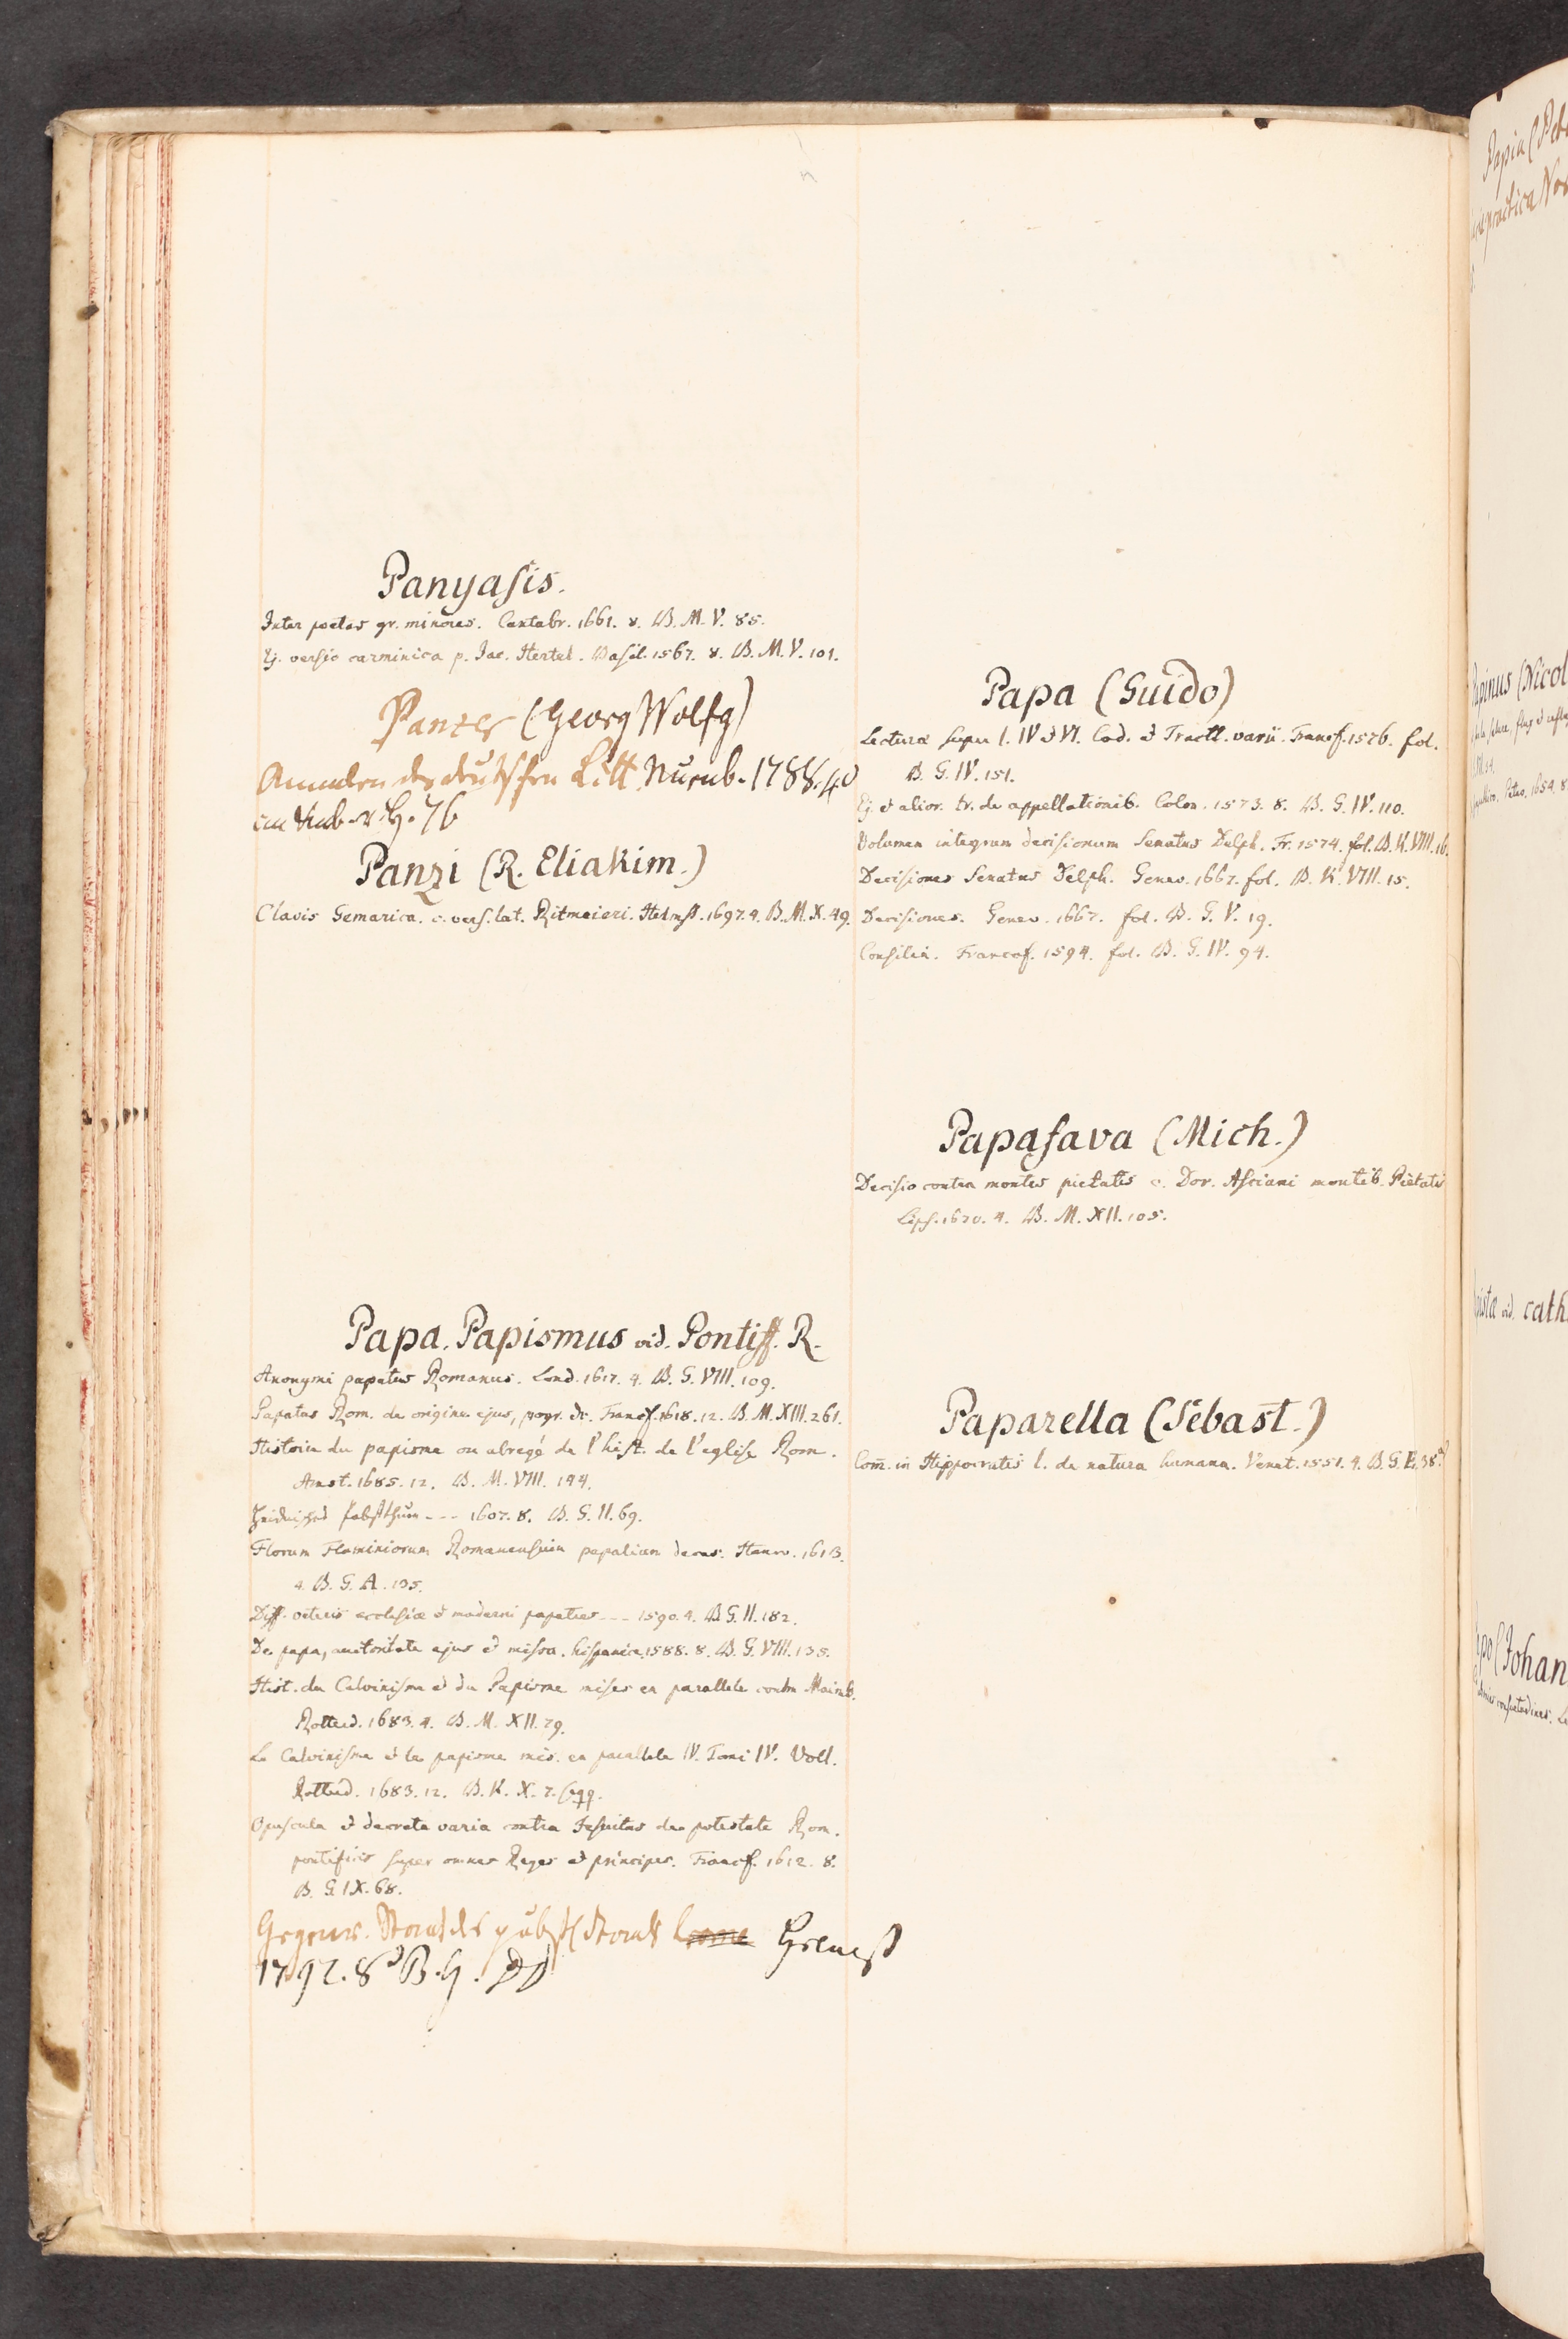 Panyasis.
Inter poetas gr. minores. Cantabr. 1661. 8. B. M. V. 85.
Ej. versio carminica p. Jac. Hertel. Basil. 1567. 8. B. M. V. 101.
Panzer (Georg Wolfg)
Annalen der deutschen Litt. Nurnb. 1788. 4o
76
Panzi (R. Eliakim.)
Clavis Gemarica. c. vers. lat. Ritmeieri. Helmst. 1697. 4. B. M. X. 49.
Papa. Papismus vid. Pontiff. R.
Anonymi papatus Romanus. Lond. 1617. 4. B. G. VIII. 109.
Papatus Rom. de origine ejus, progr. &c. Francf. 1618. 12. B. M. XIII. 261.
Histoire du papisme ou abregé de l'hist. de l'eglise Rom.
Amst. 1685. 12. B. M. VIII. 144.
Heidnisches Pabstthum --- 1607. 8. B. G. II. 69.
Florum Flaminiorum Romanensium papalium decas. Hanov. 1613.
4. B. G. A. 135.
Diff. veteris ecclesiæ & moderni papatus --- 1590. 4. B. G. II. 182.
De papa, auctoritate ejus & missa. hispanice. 1588. 8. B. G. VIII. 135.
Hist. du Calvinisme & du Papisme mises en parallele contre Maimb.
Rotterd. 1683. 4. B. M. XII. 79.
Le Calvinisme & le papisme mis. en parallele IV. Tomi IV. Voll.
Rotterd. 1683. 12. B. K. X. 7. seqq.
Opuscula & decreta varia contra Jesuitas de potestate Rom.
pontificis super omnes Reges & principes. Francf. 1612. 8.
B. G. IX. 68.
Gegenw. Staat des päbstl Staats Helmst
1792. 8o B. G.
Papa (Guido)
Lecturæ super l. IV & VI. Cod. & Tractt. varii. Francf. 1576. fol.
B. G. IV. 151.
Ej. & alior. tr. de appellationib. Colon. 1573. 8. B. G. IV. 110.
Volumen integrum decisionum Senatus Delph. Fr. 1574. fol. B. K. VIII. 16.
Decisiones Senatus Delph. Genev. 1667. fol. B. K. VIII. 15.
Decisiones. Genev. 1667. fol. B. G. V. 19.
Consilia. Francof. 1594. fol. B. G. IV. 94.
Papafava (Mich.)
Decisio contra montes pietatis c. Dor. Asciani montib. Pietatis
Lips. 1670. 4. B. M. XII. 105.
Paparella (Sebast.)
Com̄. in Hippocratis l. de natura humana. Venet. 1551. 4. B. G. E. 38.